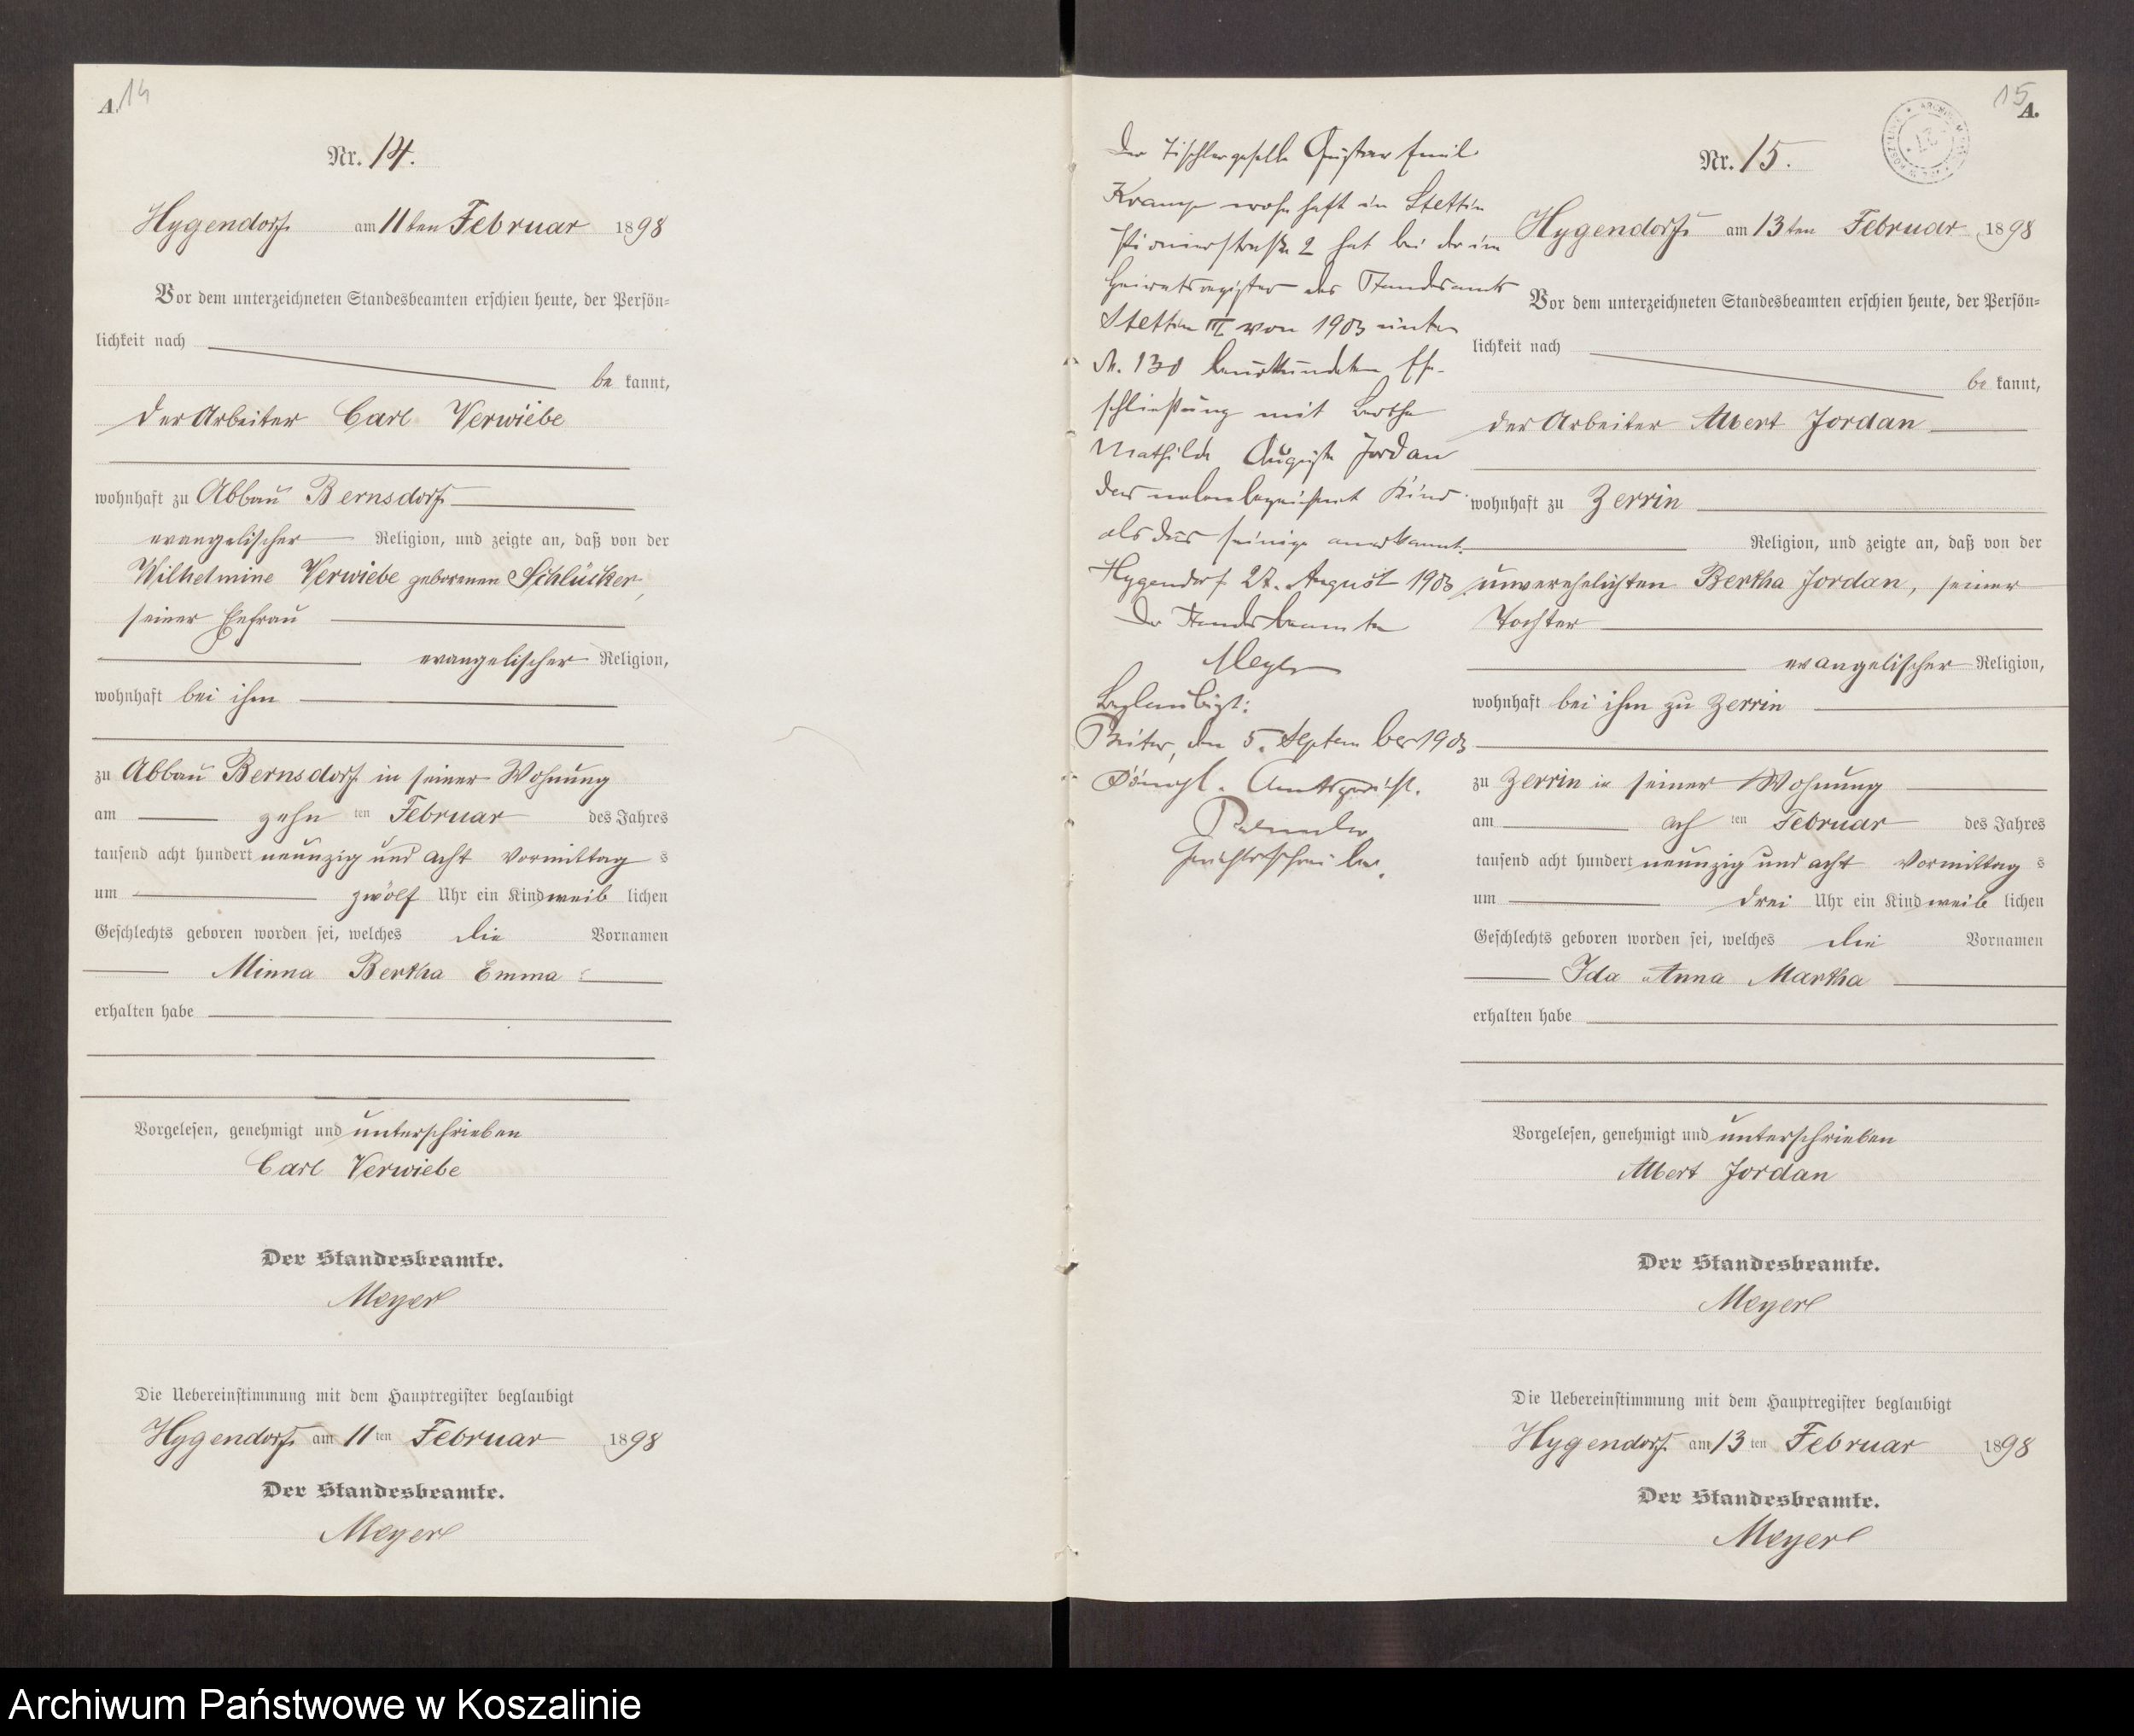 A.
14
Nr. 14.
Hygendorf am 11ten Februar 1898
Vor dem unterzeichneten Standesbeamten erschien heute, der Persön=
lichkeit nach
be kannt,
der Arbeiter Carl Verwiebe
wohnhaft zu Abbau Bernsdorf
evangelischer Religion, und zeigte an, daß von der
Wilhelmine Verwiebe geborenen Schlücker,
seiner Ehefrau
evangelischer Religion,
wohnhaft bei ihm
zu Abbau Bernsdorf in seiner Wohnung
am zehn ten Februar des Jahres
tausend acht hundert neunzig und acht Vormittag s
um zwölf Uhr ein Kind weib lichen
Geschlechts geboren worden sei, welches die Vornamen
Minna Bertha Emma
erhalten habe
Vorgelesen, genehmigt und unterschrieben
Carl Verwiebe
Der Standesbeamte.
Meyer
Die Uebereinstimmung mit dem Hauptregister beglaubigt
Hygendorf am 11 ten Februar 1898
Der Standesbeamte.
Meyer
Der Tischlergeselle Gustav Emil
Kramp wohnhaft in Stettin
Pionierstraße 2 hat bei der im
Heiratsregister des Standesamts
Stettin III von 1903 unter
N. 130 beurkundeten Ehe-
schließung mit Bertha
Mathilde Auguste Jordan
das nebenbezeichnet Kind
als das seinige anerkannt.
Hygendorf 27. August 1903
Der Standesbeamte
Meyer
Beglaubigt:
den 5. September 1903
Königl. Amtsgericht.
Gerichtsschreiber.
15
A.
Nr. 15.
Hygendorf am 13ten Februar 1898
Vor dem unterzeichneten Standesbeamten erschien heute, der Persön=
lichkeit nach
be kannt,
der Arbeiter Albert Jordan
wohnhaft zu Zerrin
Religion, und zeigte an, daß von der
unverehelichten Bertha Jordan, seiner
Tochter
evangelischer Religion,
wohnhaft bei ihm zu Zerrin
zu Zerrin in seiner Wohnung
am ach ten Februar des Jahres
tausend acht hundert neunzig und acht Vormittag s
um drei Uhr ein Kind weib lichen
Geschlechts geboren worden sei, welches die Vornamen
Ida Anna Martha
erhalten habe
Vorgelesen, genehmigt und unterschrieben
Albert Jordan
Der Standesbeamte.
Meyer
Die Uebereinstimmung mit dem Hauptregister beglaubigt
Hygendorf am 13 ten Februar 1898
Der Standesbeamte.
Meyer
Archiwum Państwowe w Koszalinie